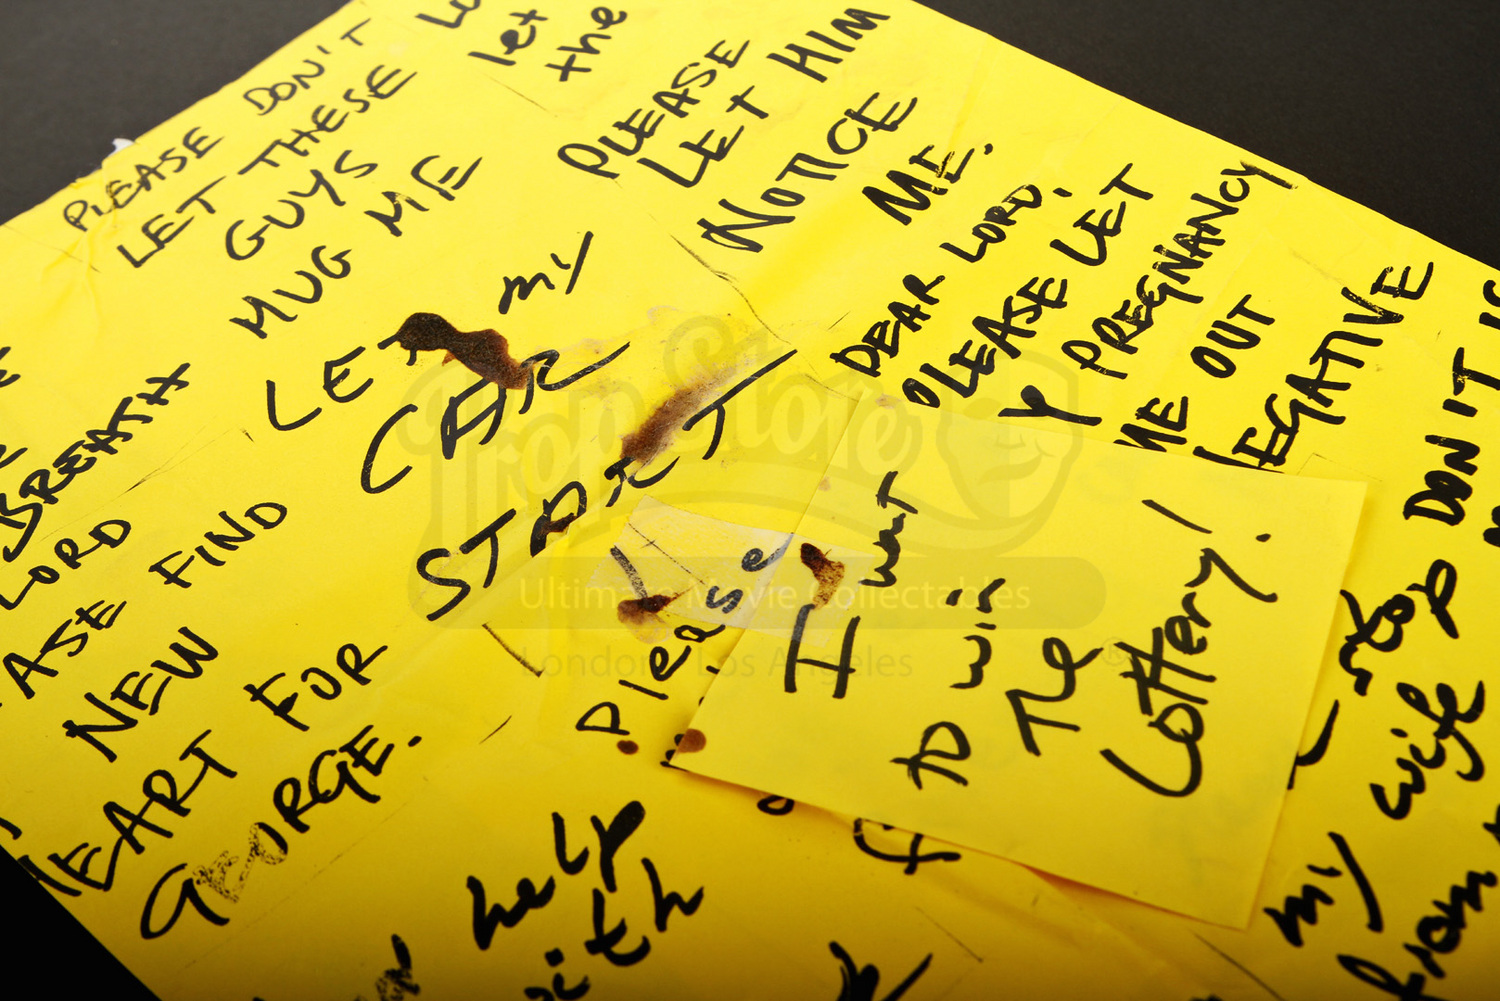 PLEASE DON'T
LET THESE
GUYS
MUG ME
let
the
PLEASE
LET HIM
NOTICE
ME.
DEAR LORD.
PLEASE LET
Y PREGNANCY
ME OUT
NEGATIVE
LET my
CAR
START
BREATH
LORD
EASE FIND
NEW
HEART FOR
GEORGE.
Please
I want
to win
The
Lottery!
help
with
DON'T
my wife
my
from
Prop Store
Ultimate Movie Collectables
London Los Angeles